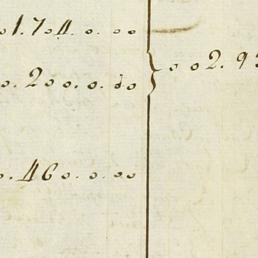 01.704.0.00
0.200.0.00
002.93
0.460.0.00